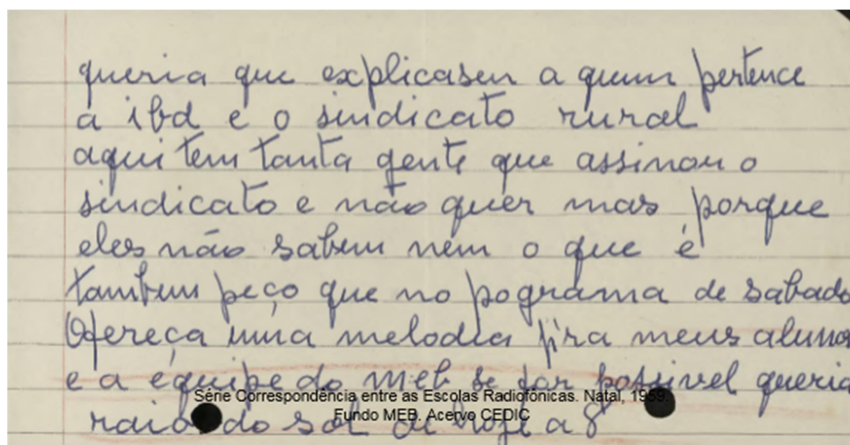 queria que explicasen a quem pertence
a ibd e o sindicato rural
aqui tem tanta gente que assinou o
sindicato e não quer mas porque
eles não sabem nem o que é
tambem peço que no pograma de sabado
Ofereça uma melodia pra meus aluno
e a equipe do meb se for possivel queria
raio do sol de hoje a 8
Série Correspondência entre as Escolas Radiofônicas. Natal, 1959.
Fundo MEB. Acervo CEDIC